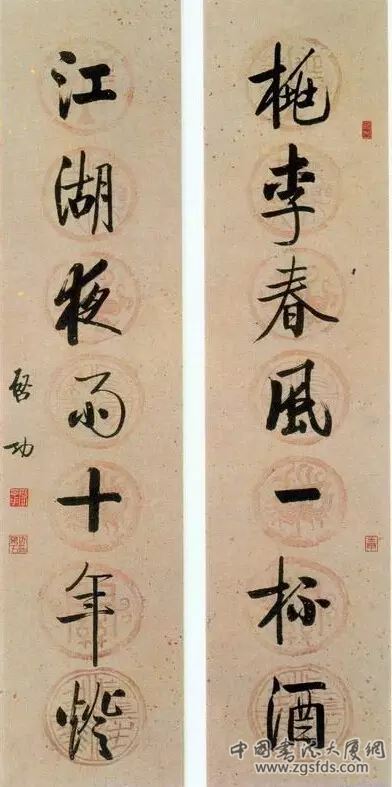 桃李春風一杯酒
江湖夜雨十年燈
啓功
中國書法大厦網
www.zgsfds.com